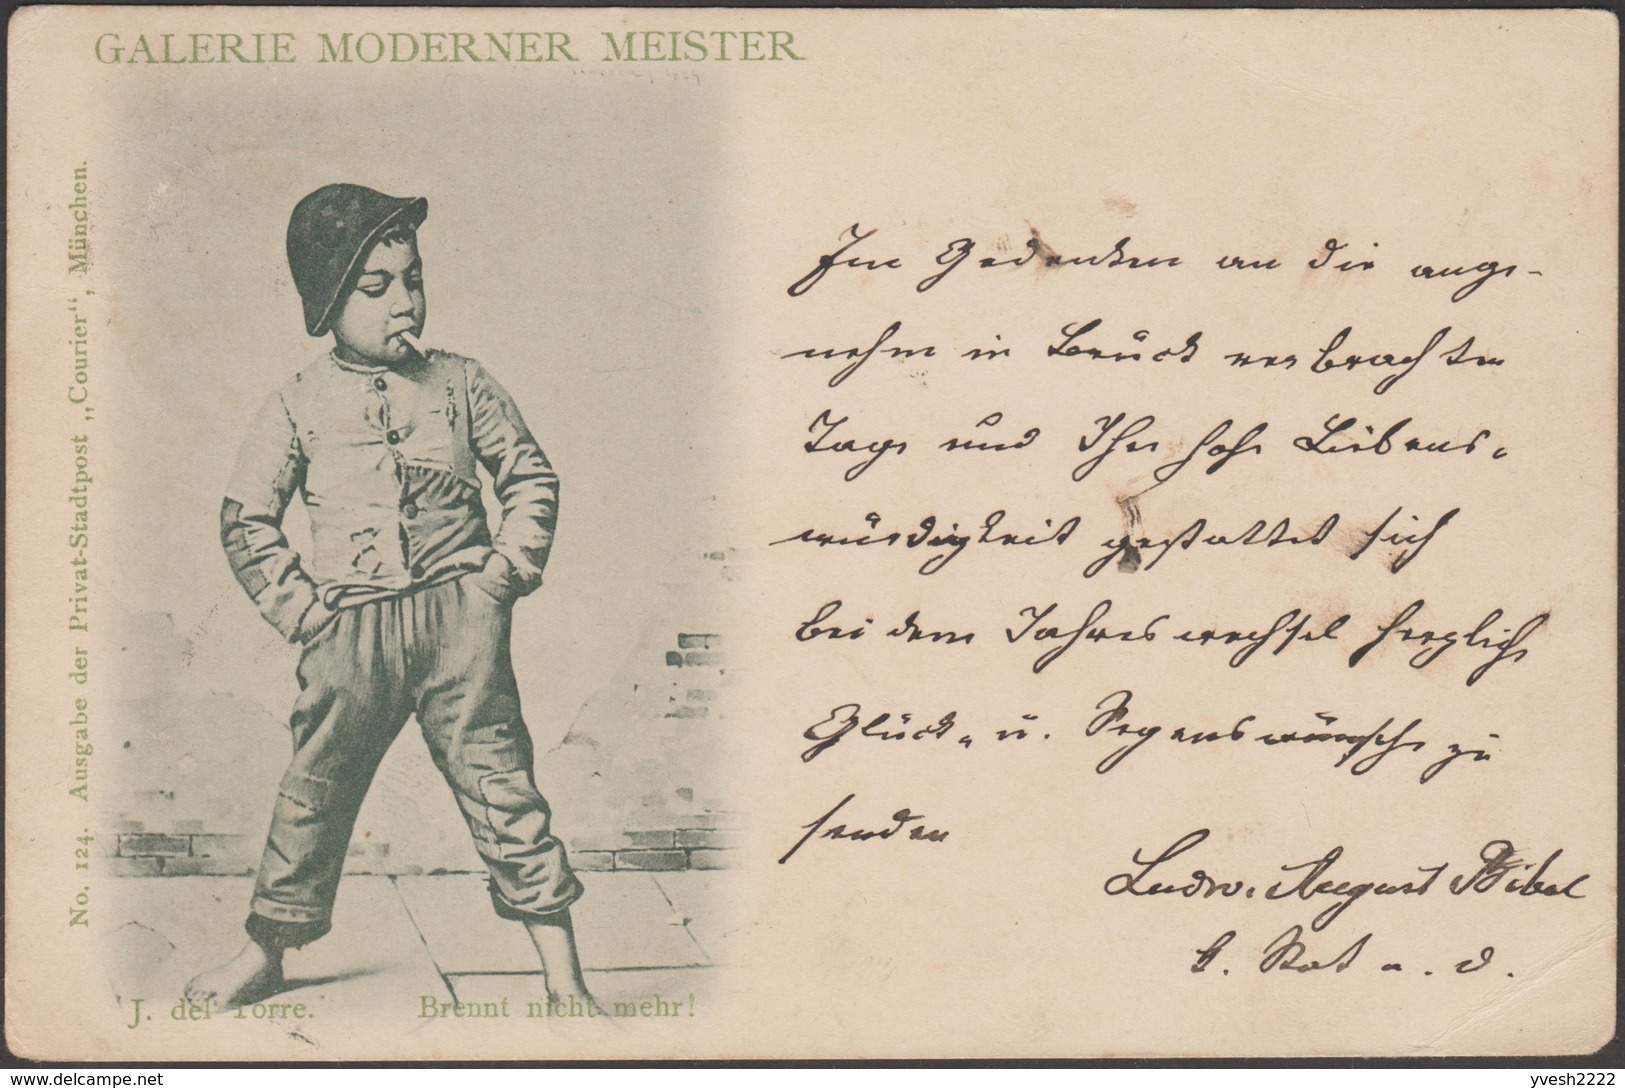 GALERIE MODERNER MEISTER
No. 124. Ausgabe der Privat-Stadtpost „Courier“, München.
J. del Torre. Brennt nicht mehr!
Im Gedenken an die ange-
nehm in Brück verbrachten
Tage und Ihre hohe Liebens-
würdigkeit gestattet sich
bei dem Jahreswechsel herzliche
Glück- u. Segenswünsche zu
senden
Ludw. August Bibel
g. Rat a. d.
delcampe.net
yvesh2222